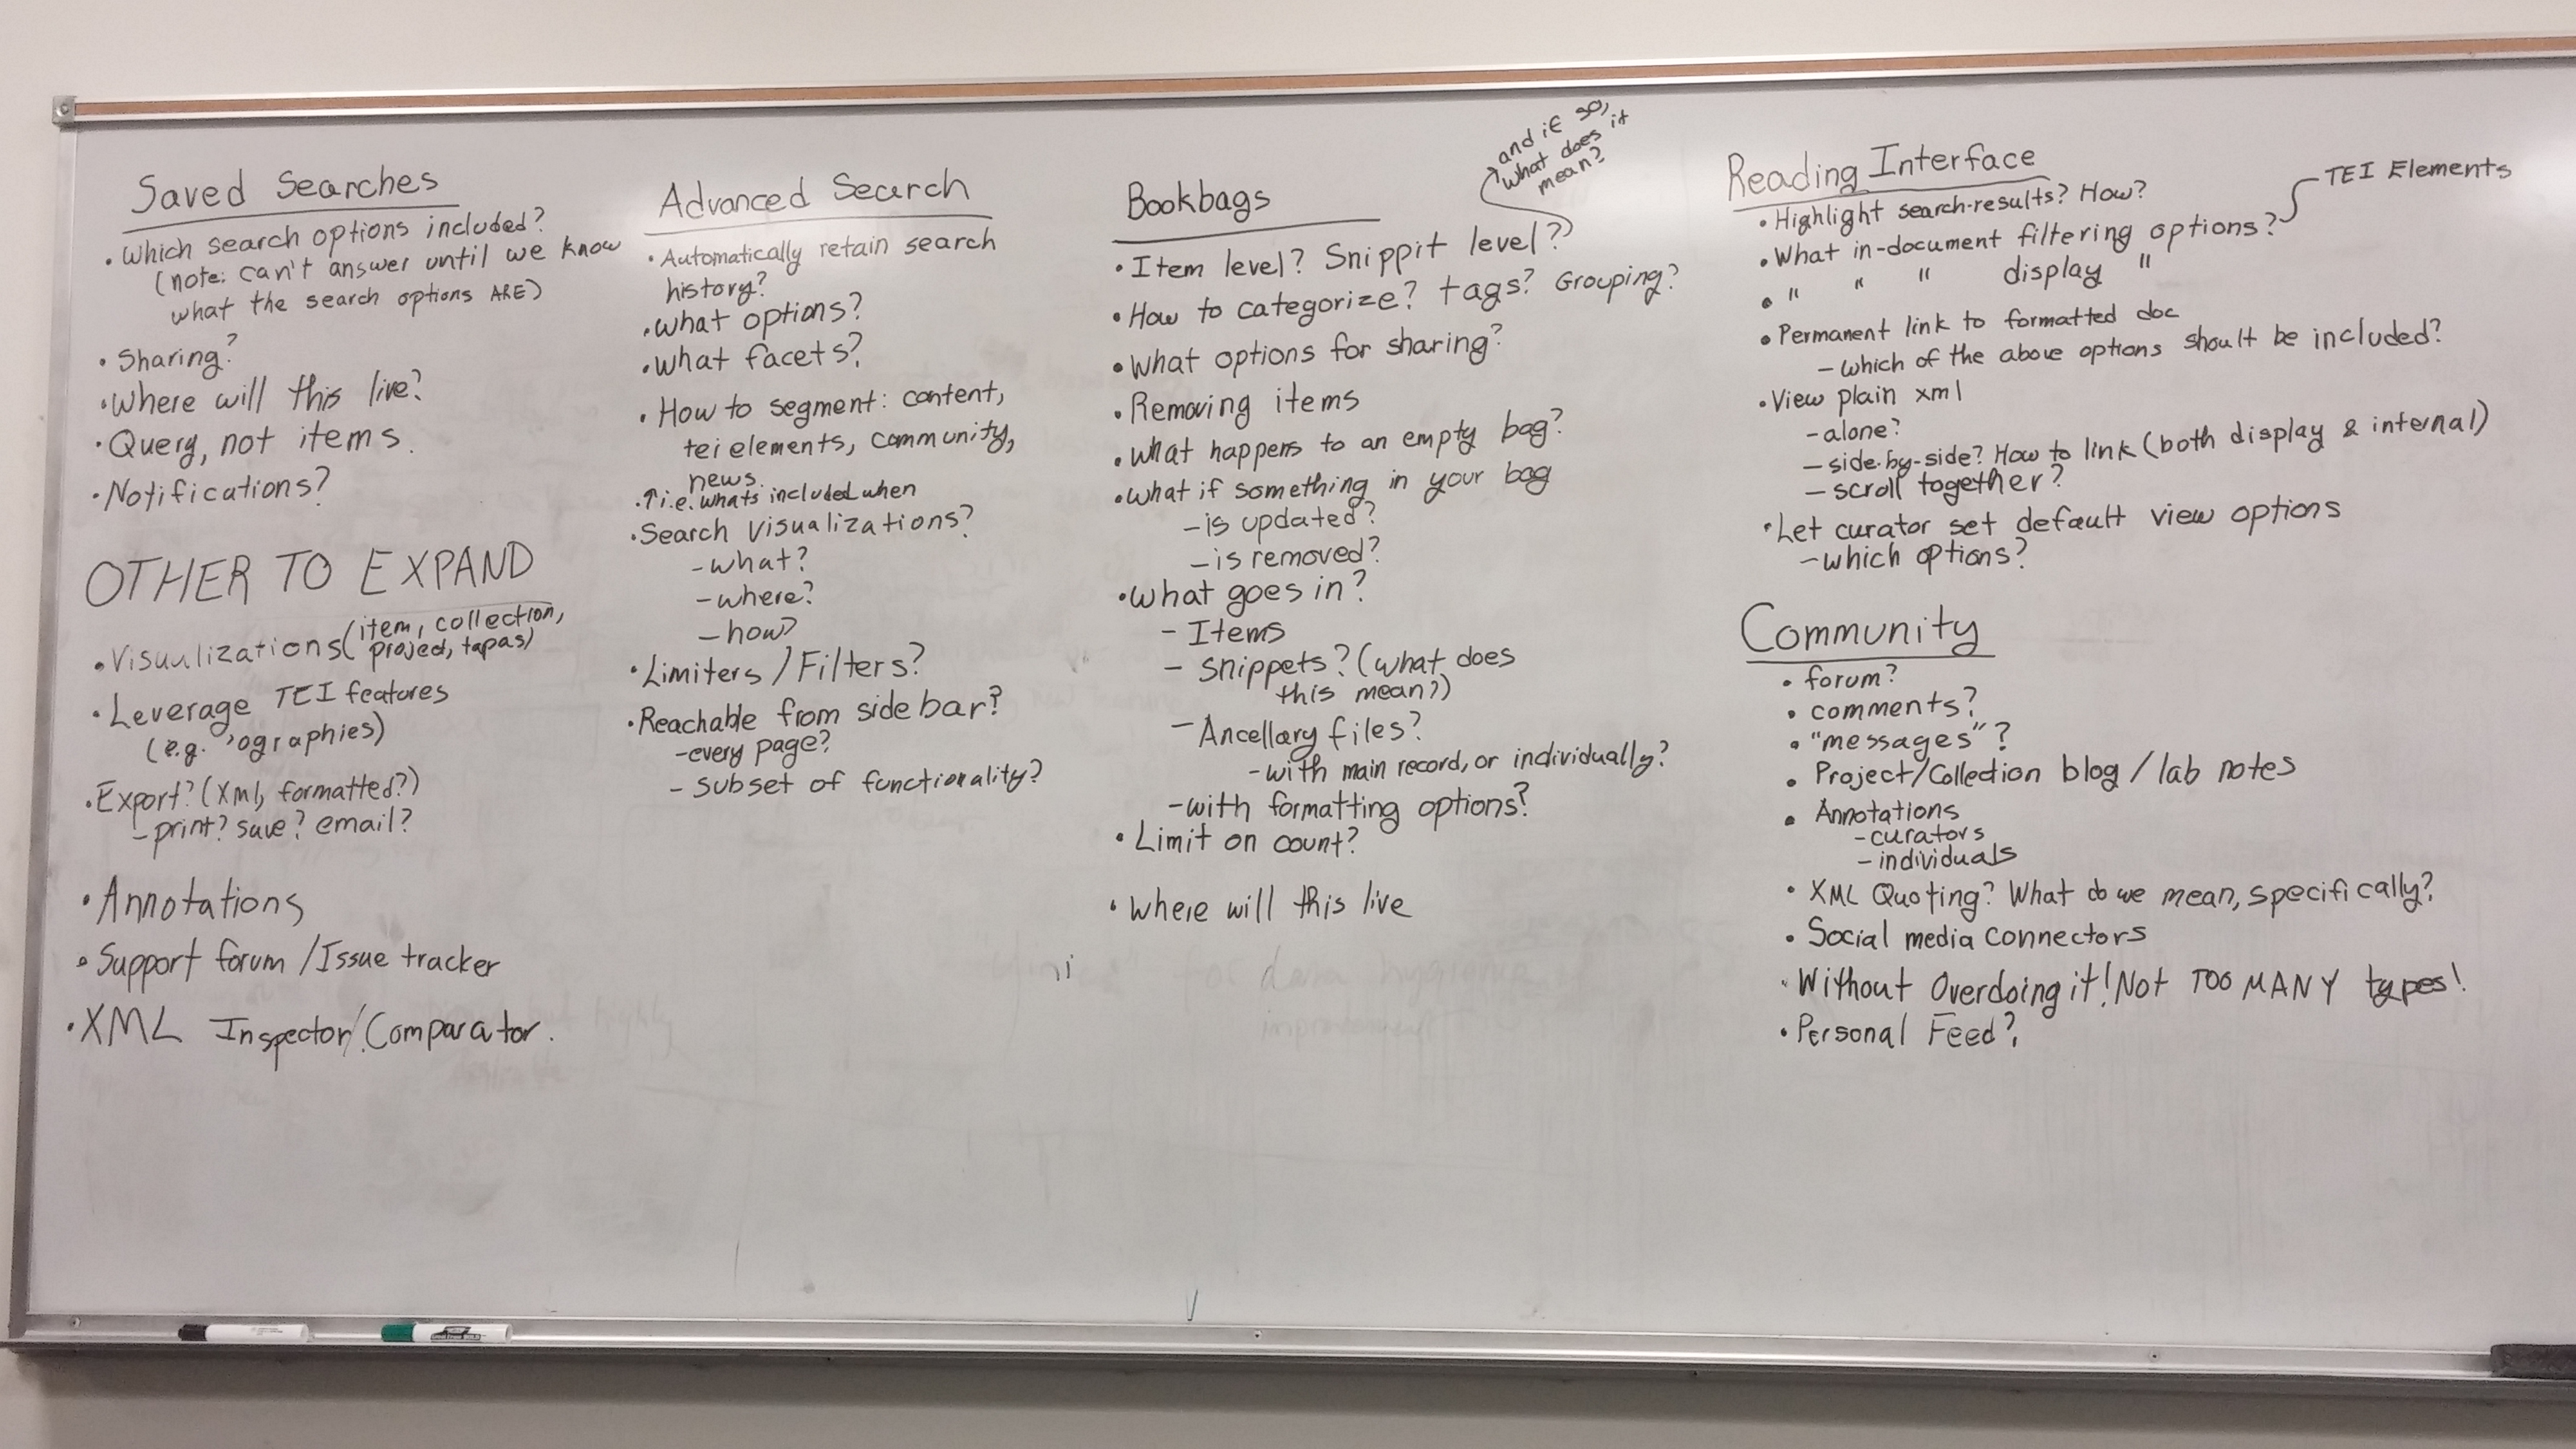 Saved Searches
• Which search options included?
(note: can't answer until we know
what the search options ARE)
• Sharing?
• Where will this live?
• Query, not items.
• Notifications?
OTHER TO EXPAND
• Visualizations (item, collection,
project, tapas)
• Leverage TEI features
(e.g. 'ographies)
• Export? (xml, formatted?)
- print? save? email?
• Annotations
• Support forum / Issue tracker
• XML Inspector/Comparator.
Advanced Search
• Automatically retain search
history?
• what options?
• what facets?
• How to segment: content,
tei elements, community,
news.
• ↑ i.e. whats included when
• Search visualizations?
- what?
- where?
- how?
• Limiters / Filters?
• Reachable from side bar?
- every page?
- subset of functionality?
Bookbags
• Item level? Snippit level?
and if so,
what does it
mean?
• How to categorize? tags? Grouping?
• What options for sharing?
• Removing items
• What happens to an empty bag?
• What if something in your bag
- is updated?
- is removed?
• What goes in?
- Items
- snippets? (what does
this mean?)
- Ancellary files?
- with main record, or individually?
- with formatting options?
• Limit on count?
• Where will this live
Reading Interface
• Highlight search-results? How?
• What in-document filtering options?
TEI Elements
• " " " display "
• Permanent link to formatted doc
- which of the above options shoult be included?
• View plain xml
- alone?
- side-by-side? How to link (both display & internal)
- scroll together?
• Let curator set default view options
- which options?
Community
• forum?
• comments?
• "messages"?
• Project/Collection blog / lab notes
• Annotations
- curators
- individuals
• XML Quoting? What do we mean, specifically?
• Social media connectors
• Without Overdoing it! Not TOO MANY types!
• Personal Feed?